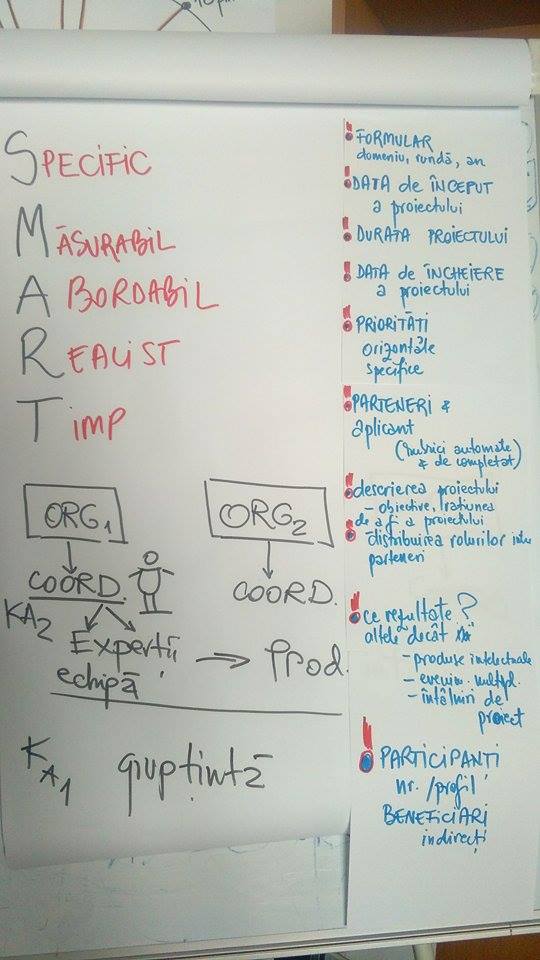 SPECIFIC
MĂSURABIL
ABORDABIL
REALIST
TIMP
ORG1
ORG2
COORD.
COORD.
KA2
Experții
echipă
Prod.
KA1
grup țintă
! FORMULAR
domeniu, rundă, an
! DATA de ÎNCEPUT
a proiectului
! DURATA PROIECTULUI
! DATA de ÎNCHEIERE
a proiectului
! PRIORITĂȚI
orizontale
specifice
! PARTENERI &
aplicant
(rubrici automate
& de completat)
! descrierea proiectului
- obiective, rațiunea
de a fi a proiectului
! distribuirea rolurilor între
parteneri
! ce rezultate?
altele decât
- produse intelectuale
- evenim. multipl.
- întâlniri de
proiect
! PARTICIPANȚI
nr. / profil
BENEFICIARI
indirecți